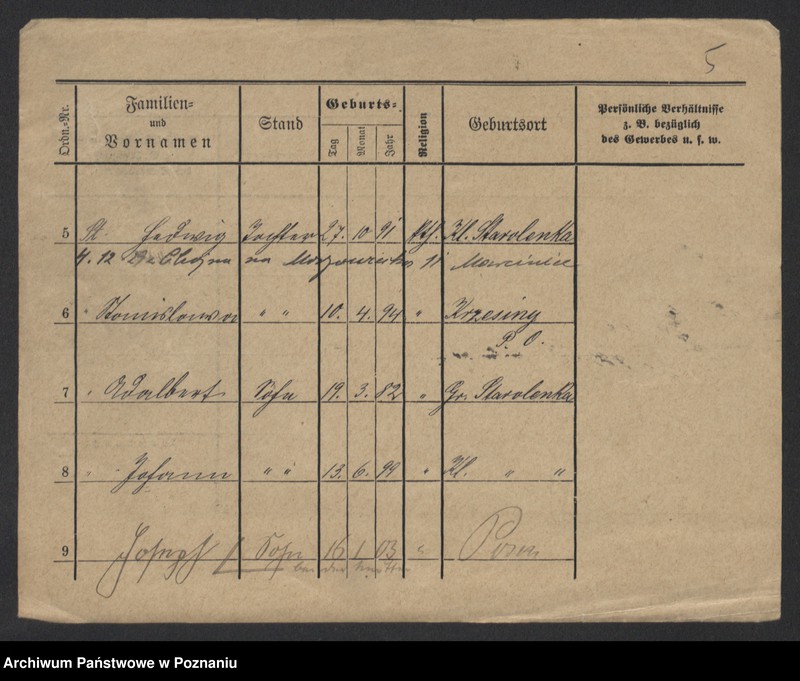 5
Ordn.-Nr.
Familien-
und
Vornamen
Stand
Geburts-
Tag
Monat
Jahr
Religion
Geburtsort
Persönliche Verhältnisse
z. B. bezüglich
des Gewerbes u. s. w.
5 Hedwig Tochter 27. 10 91 kth. Kl. Starolenka
4. 12 na 11
6 " Stanislawa " " 10. 4. 94 " Krzesiny
P. O.
7 " Adalbert Sohn 19. 3. 82 " Gr. Starolenka
8 " Johann " " 13. 6. 99 " Kl. " "
9 Joseph Sohn 16 1 03 " Posen
Archiwum Państwowe w Poznaniu